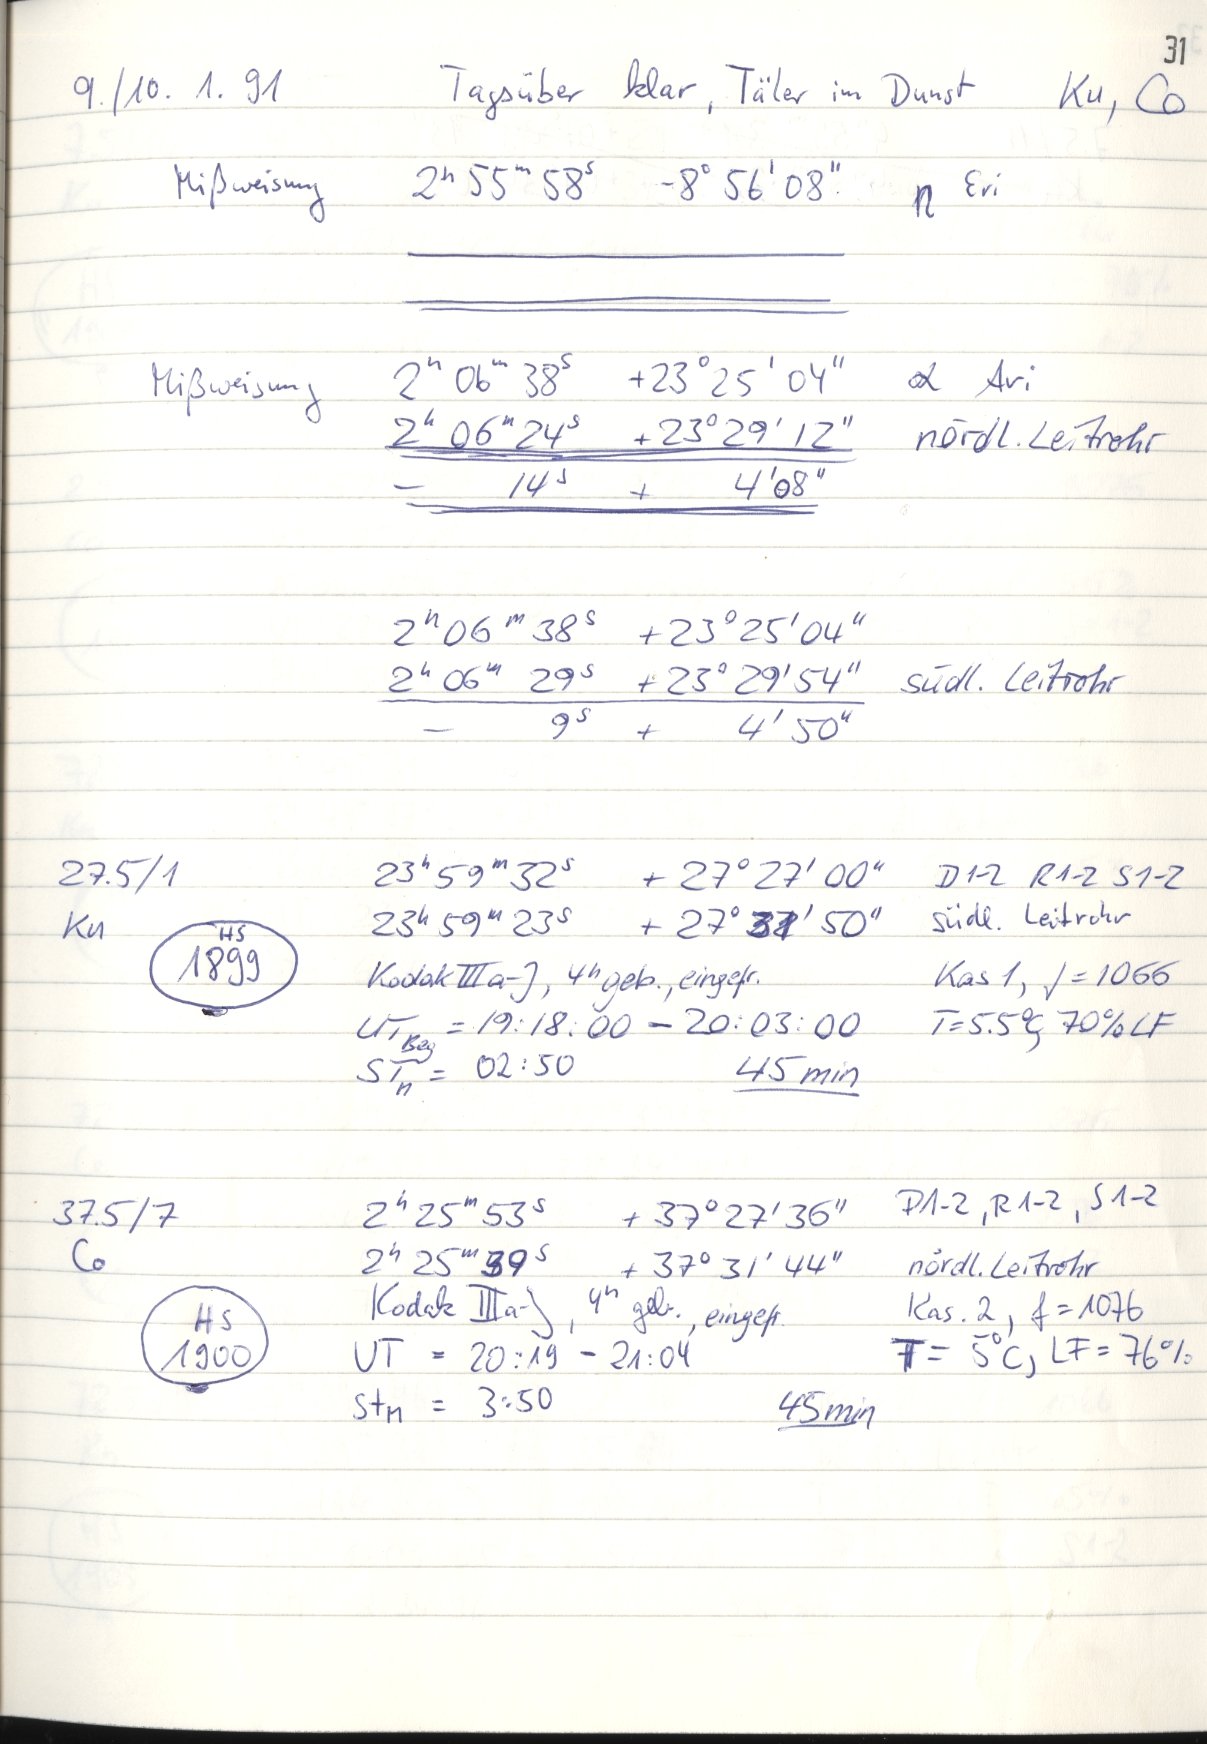 31
9./10. 1. 91 Tagsüber klar, Täler im Dunst Ku, Co
Mißweisung 2ʰ 55ᵐ 58ˢ -8° 56' 08" η Eri
Mißweisung 2ʰ 06ᵐ 38ˢ +23° 25' 04" α Ari
2ʰ 06ᵐ 24ˢ +23° 29' 12" nördl. Leitrohr
- 14ˢ + 4' 08"
2ʰ 06ᵐ 38ˢ +23° 25' 04"
2ʰ 06ᵐ 29ˢ +23° 29' 54" südl. Leitrohr
- 9ˢ + 4' 50"
27.5/1 23ʰ 59ᵐ 32ˢ +27° 27' 00" D1-2 R1-2 S1-2
Ku 23ʰ 59ᵐ 23ˢ +27° 31' 50" südl. Leitrohr
HS 1899 Kodak IIIa-J, 4ʰ geb., eingefr. Kas 1, f = 1066
UT Beg = 19:18:00 - 20:03:00 T=5.5°C, 70% LF
STn = 02:50 45 min
37.5/7 2ʰ 25ᵐ 53ˢ +37° 27' 36" D1-2, R1-2, S1-2
Co 2ʰ 25ᵐ 39ˢ +37° 31' 44" nördl. Leitrohr
HS 1900 Kodak IIIa-J, 4ʰ geb., eingefr. Kas. 2, f = 1076
UT = 20:19 - 21:04 T = 5°C, LF = 76%
StM = 3:50 45 min